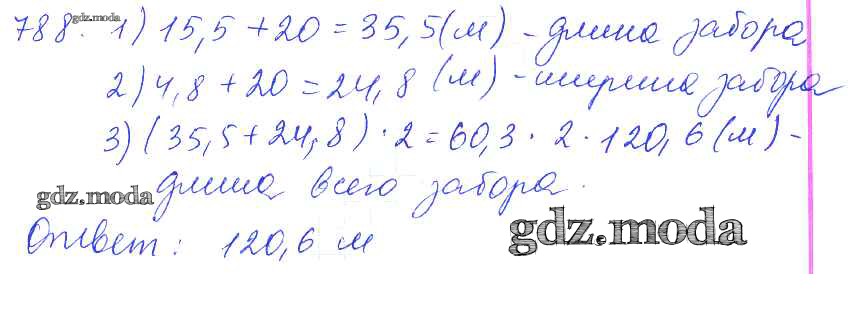 788. gdz.moda 1) 15,5 + 20 = 35,5 (м) - длина забора
2) 4,8 + 20 = 24,8 (м) - ширина забора
3) (35,5 + 24,8) · 2 = 60,3 · 2 · 120,6 (м) -
gdz.moda длина всего забора.
Ответ: 120,6 м
gdz.moda